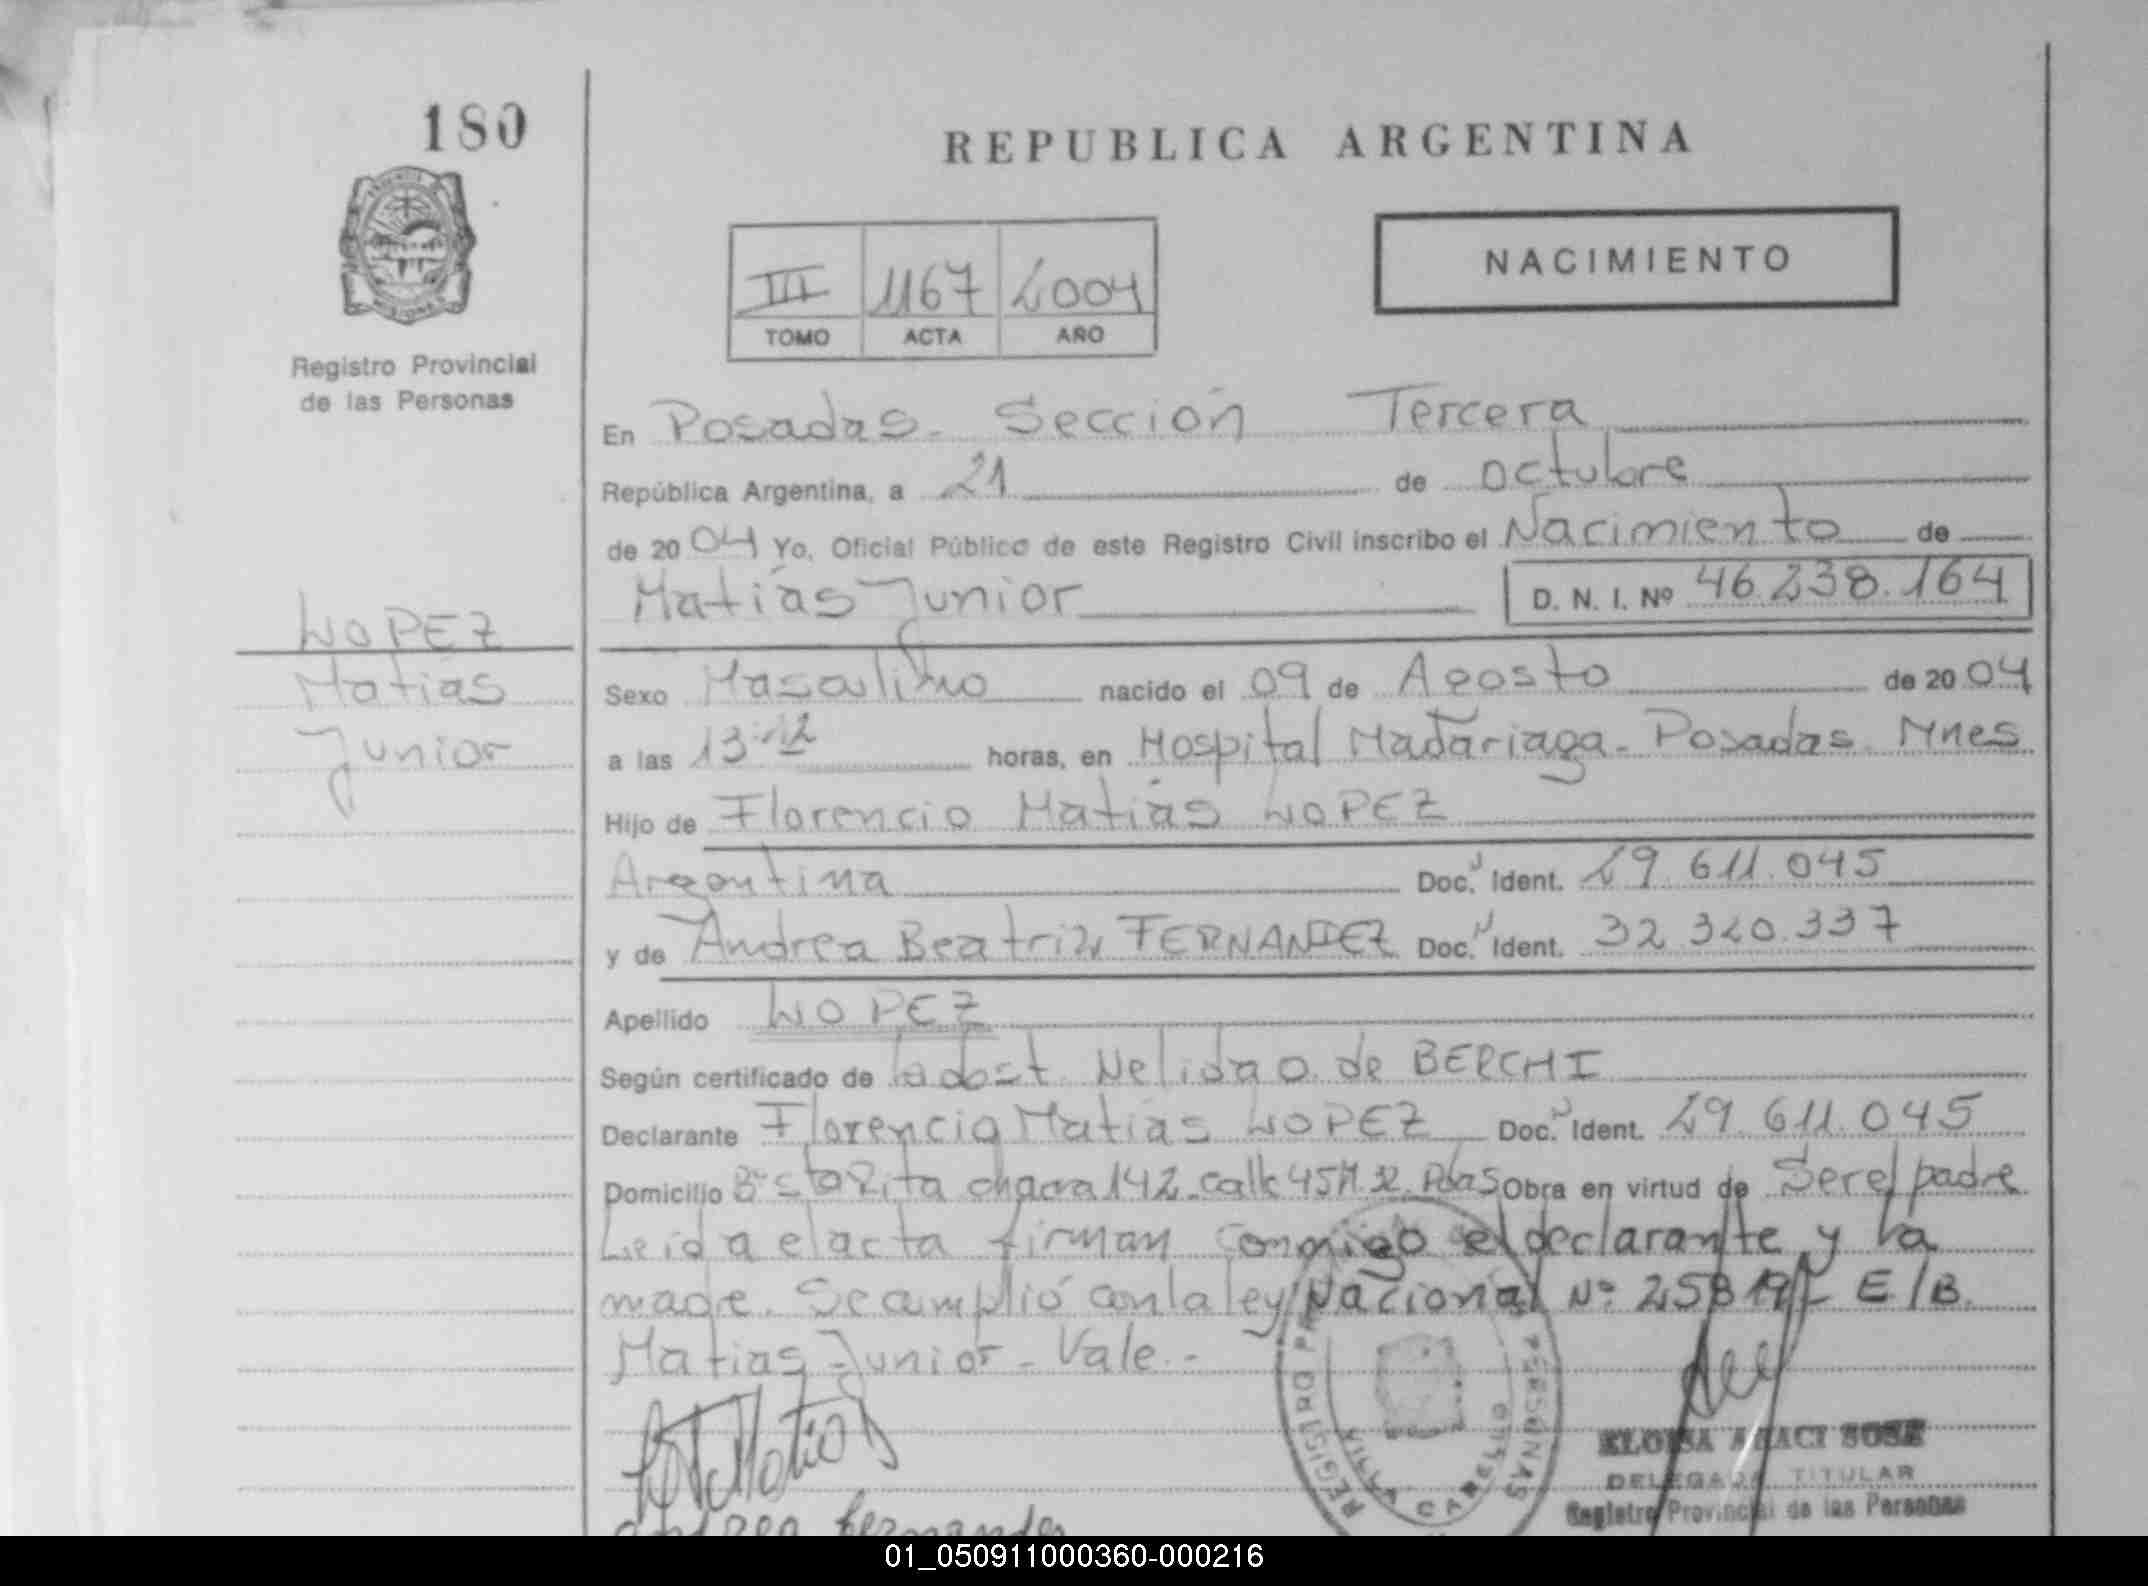 180
REPUBLICA ARGENTINA
NACIMIENTO
III 1167 2004
TOMO ACTA AÑO
Registro Provincial
de las Personas
En Posadas. Sección Tercera
República Argentina, a 21 de octubre
de 2004 Yo, Oficial Público de este Registro Civil inscribo el Nacimiento de
Matías Junior D. N. I. Nº 46.238.164
LOPEZ
Matías
Junior
Sexo Masculino nacido el 09 de Agosto de 2004
a las 13:12 horas, en Hospital Madariaga. Posadas. Mnes
Hijo de Florencio Matías LOPEZ
Argentina Doc. Ident. 29.611.045
y de Andrea Beatriz FERNANDEZ Doc. Ident. 32.320.337
Apellido LOPEZ
Según certificado de la obst. Nelida O. de BERCHI
Declarante Florencio Matías LOPEZ Doc. Ident. 29.611.045
Domicilio Bº Sta Rita chacra 142. Calle 45 Pdas Obra en virtud de Ser el padre
Leida el acta firman conmigo el declarante y la
madre. Se cumplió con la ley Nacional Nº E/B.
Matías Junior - Vale.-
REGISTRO PERSONAS
VILLA CABELLO
ELOISA ARACI SOSE
DELEGADA TITULAR
Registro Provincial de las Personas
Andrea Fernandez
01_050911000360-000216